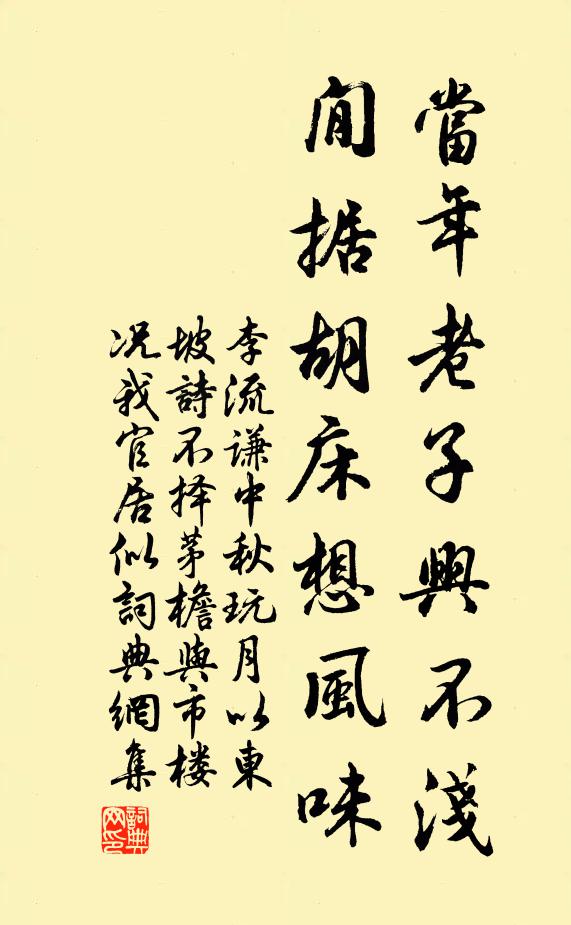 當年老子興不淺
閒据胡床想風味
李流謙中秋玩月以東
坡詩不择茅檐與市楼
况我官居似詞典網集
詞典网印